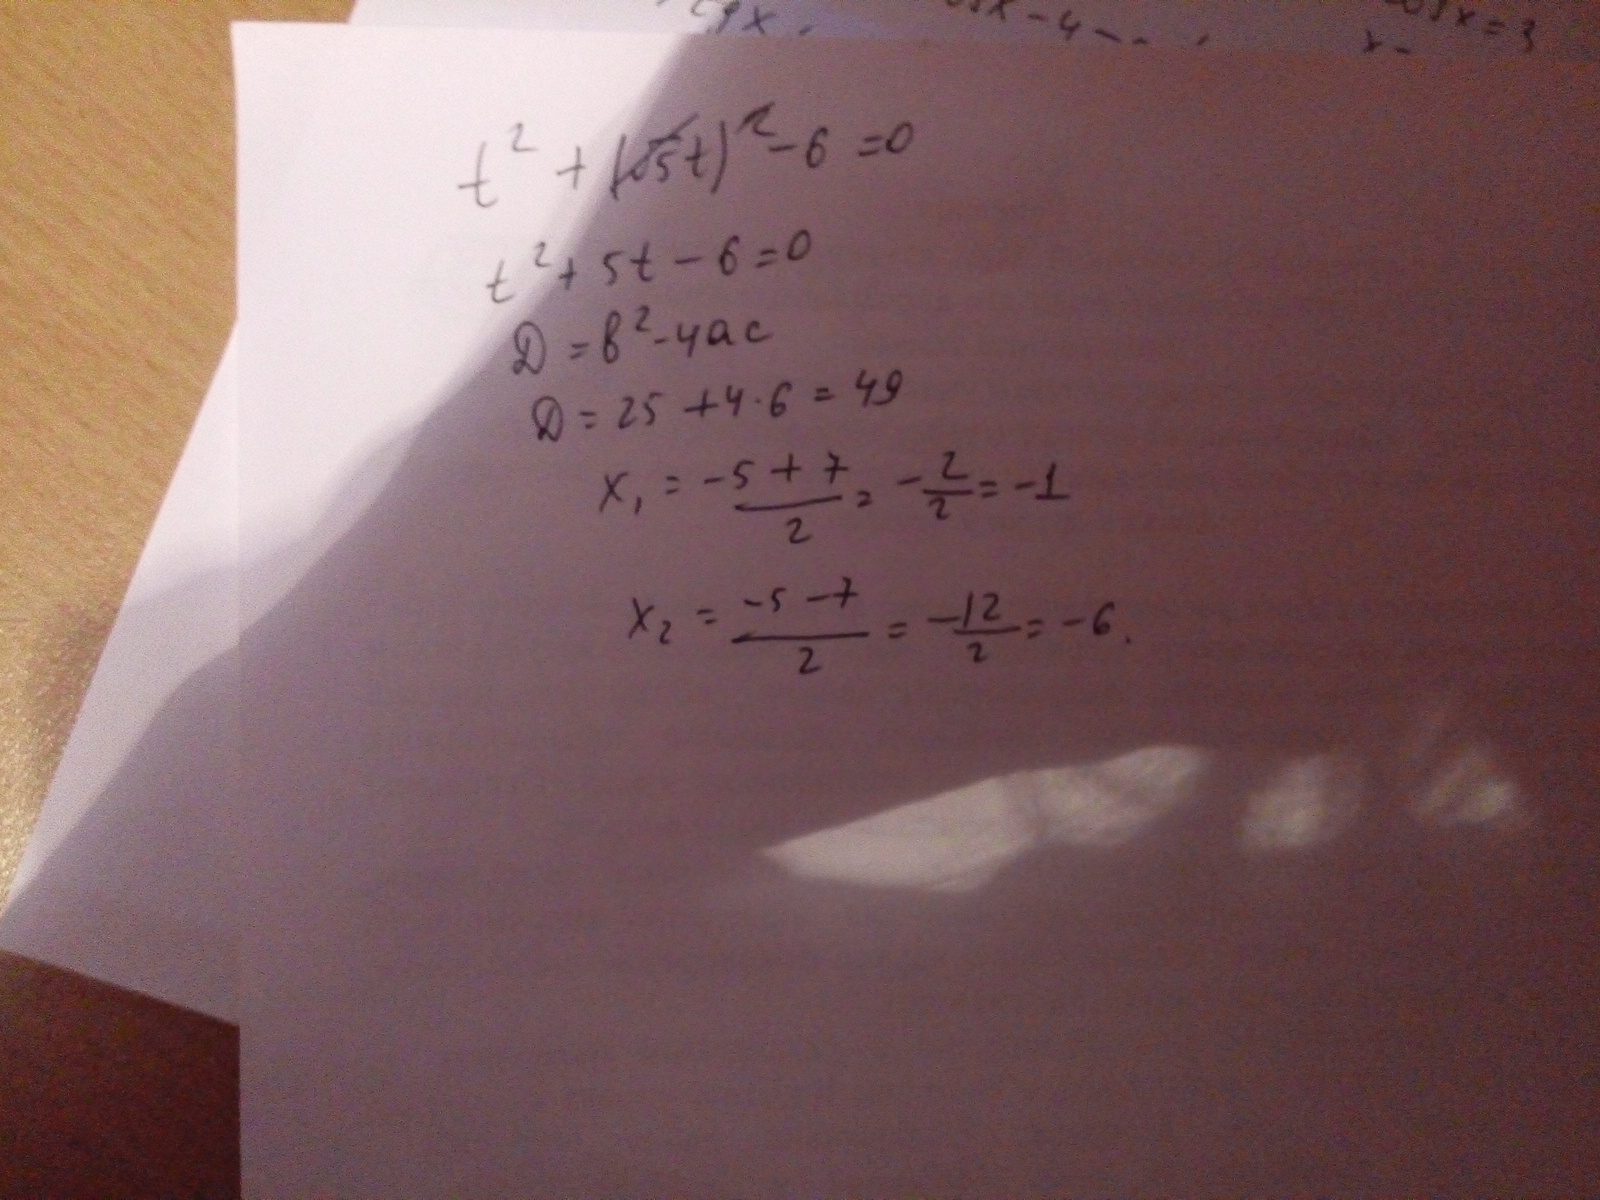 x = 3
t² + (√5t)² - 6 = 0
t² + 5t - 6 = 0
D = b² - 4ac
D = 25 + 4·6 = 49
x₁ = -5 + 7 / 2 = - 2/2 = -1
x₂ = -5 - 7 / 2 = -12/2 = -6.